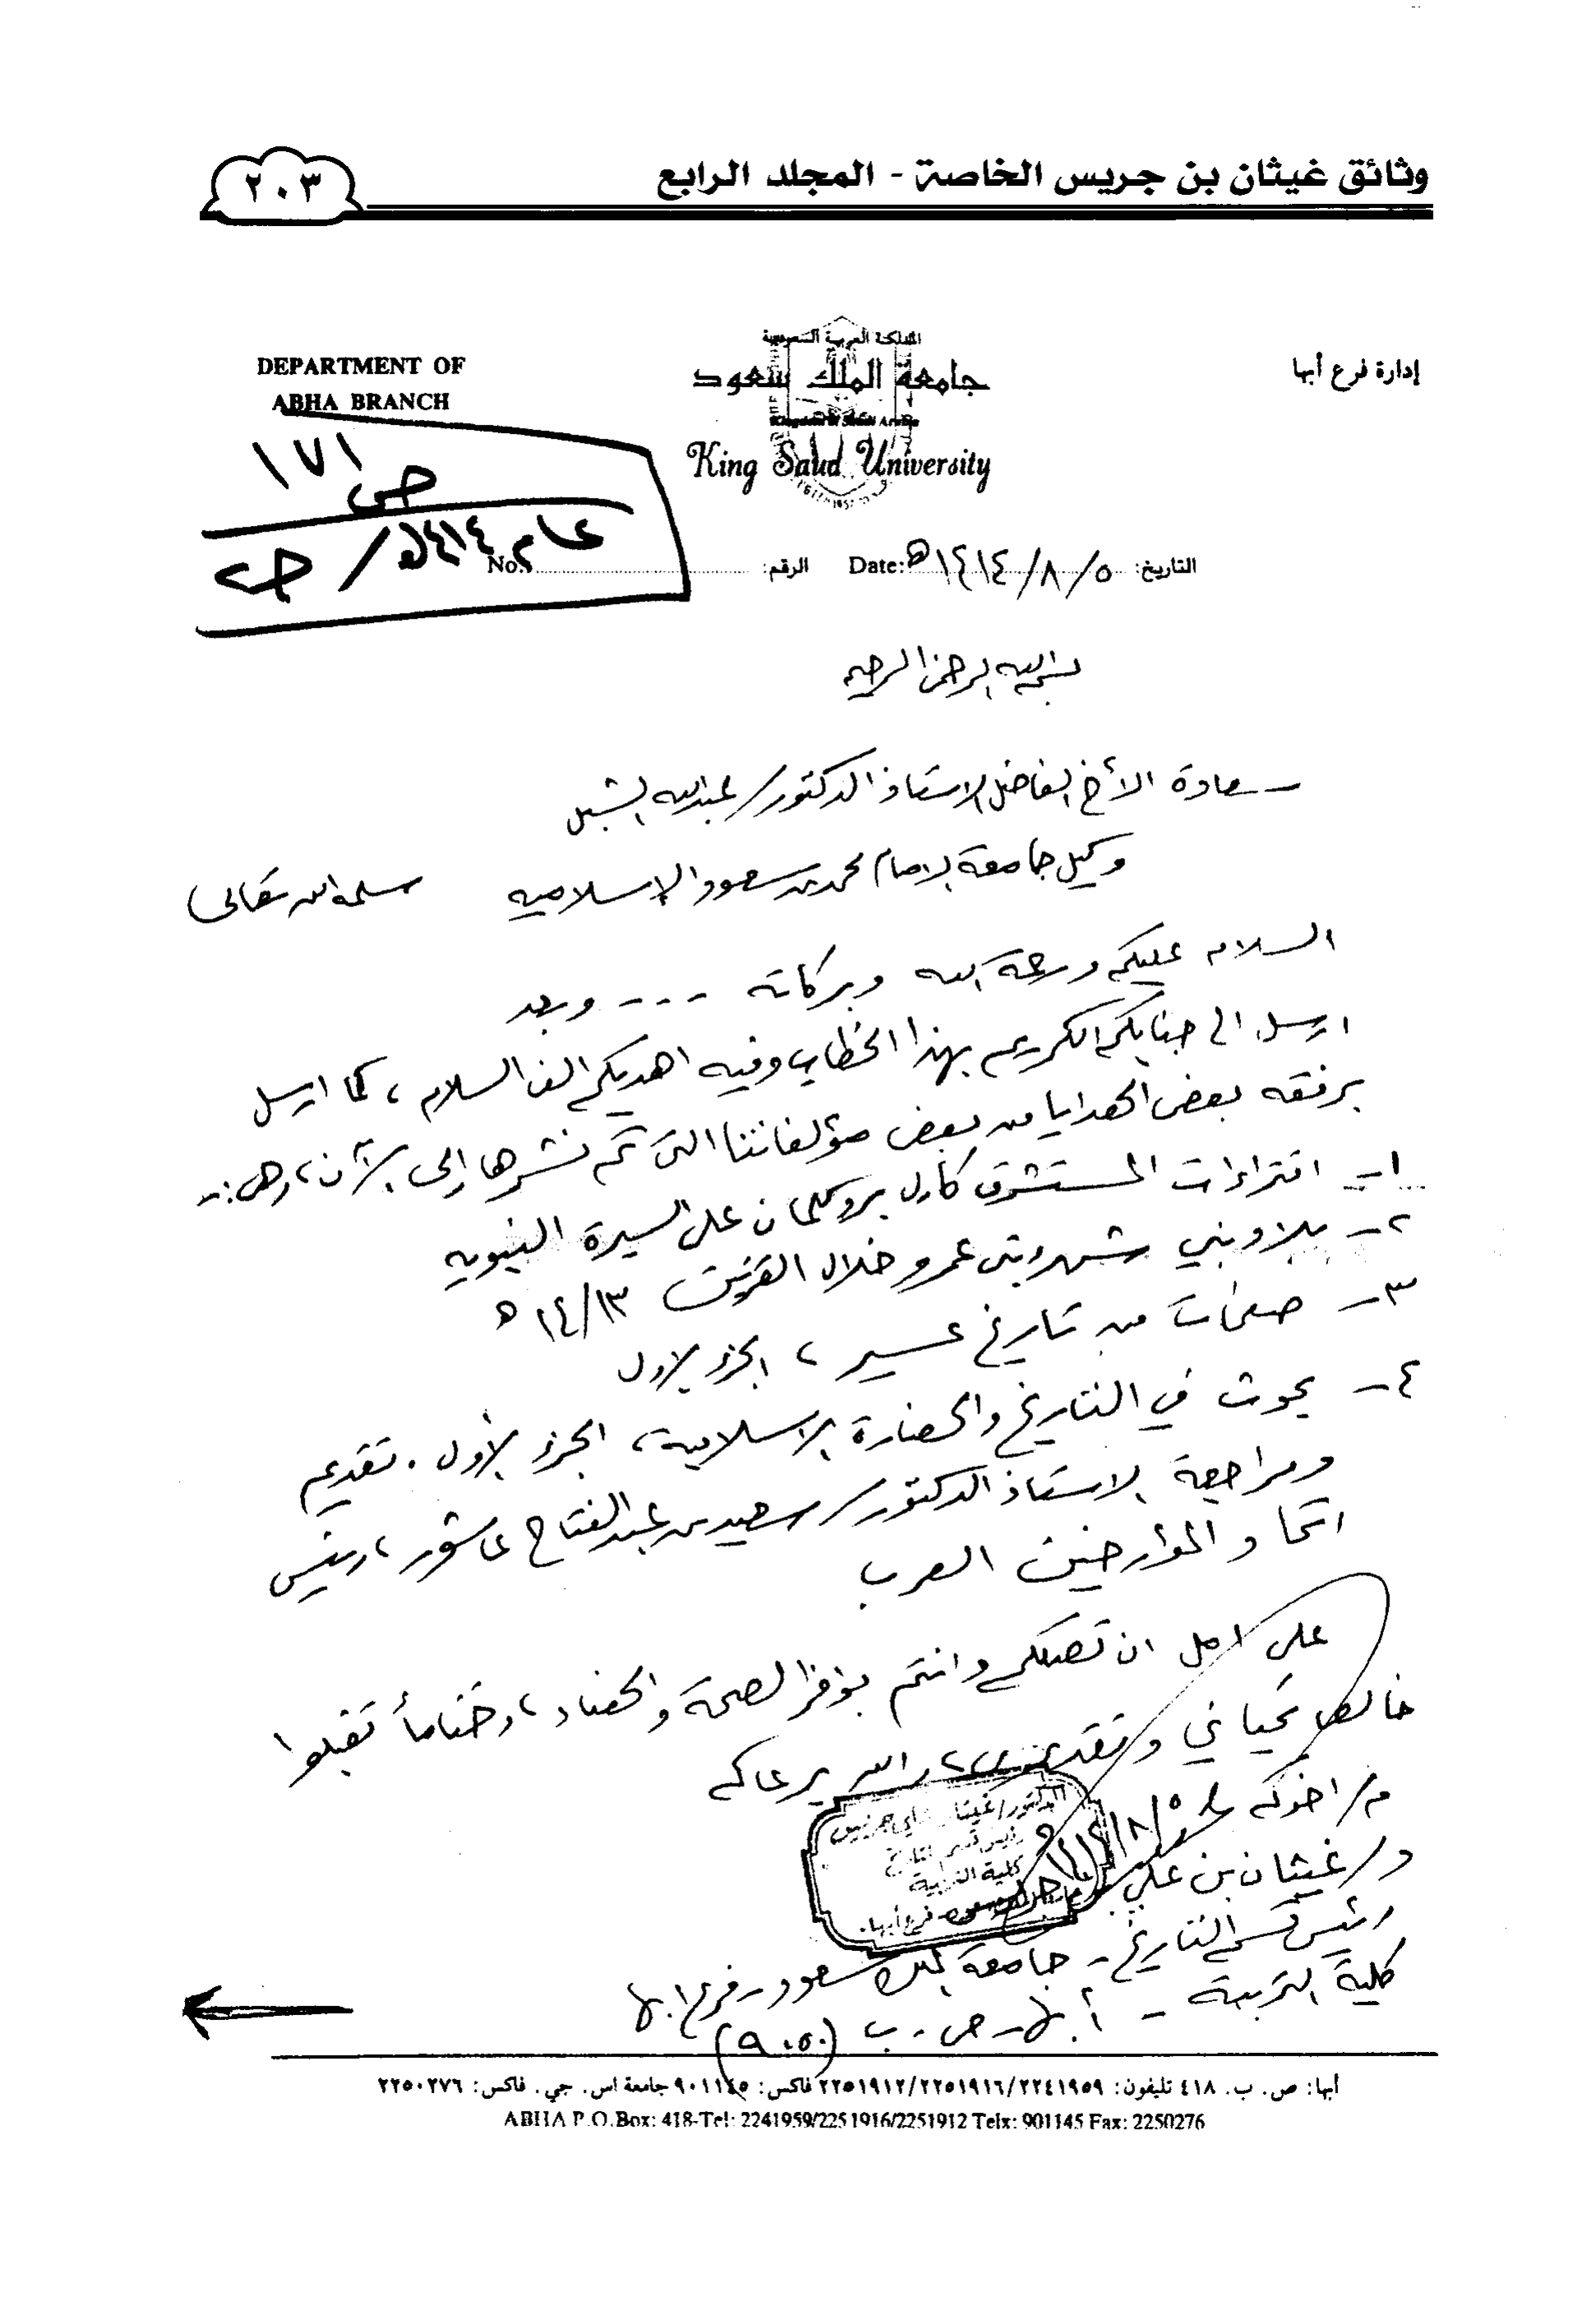 وثائق غيثان بن جريس الخاصة - المجلد الرابع
٢٠٣
إدارة فرع أبها
المملكة العربية السعودية
جامعة الملك سعود
Kingdom of Saudi Arabia
King Saud University
DEPARTMENT OF
ABHA BRANCH
١٧١
ص
عام ١٤١٤هـ / ص
التاريخ: ٥/٨/١٤١٤هـ Date: الرقم: No.:
بسم الله الرحمن الرحيم
سعادة الأخ الفاضل الاستاذ الدكتور/ عبدالله الشبل
وكيل جامعة الامام محمد بن سعود الإسلاميه سلمه الله تعالى
السلام عليكم ورحمة الله وبركاته --- وبعد
ارسل الى جنابكم الكريم بهذا الخطاب وفيه اهديكم الف السلام، كما ارسل
برفقه بعض الهدايا من بعض مؤلفاتنا التي تم نشرها إلى الآن، وهي:-
١- افتراءات المستشرق كارل بروكلمان على السيرة النبويه
٢- بلاد بني شهر وبني عمرو خلال القرنين ١٣/١٤ هـ
٣- صفحات من تاريخ عسير، الجزء الاول
٤- بحوث في التاريخ والحضارة الاسلامية، الجزء الأول. تقديم
ومراجعة الاستاذ الدكتور/ سعيد بن عبدالفتاح عاشور، رئيس
اتحاد المؤارخين العرب
على امل ان تصلكم وانتم بوافر الصحة والهناء، وختاماً تقبلوا
خالص تحياتي وتقديري، والله يرعاكم
م/ اخوكم
٥/٨/١٤١٤هـ
د/ غيثان بن علي جريس
رئيس قسم التاريخ - جامعة الملك سعود - فرع ابها
كلية التربية - أبها - ص.ب (٩٠٥٠)
الدكتور/ غيثان بن علي جريس
رئيس قسم التاريخ
كلية التربية
أبها: ص. ب. ٤١٨ تليفون: ٢٢٥١٩١٢/٢٢٥١٩١٦/٢٢٤١٩٥٩ فاكس: ٩٠١١٤٥ جامعة اس. جي. فاكس: ٢٢٥٠٢٧٦
ABHA P.O.Box: 418-Tel: 2241959/2251916/2251912 Telx: 901145 Fax: 2250276